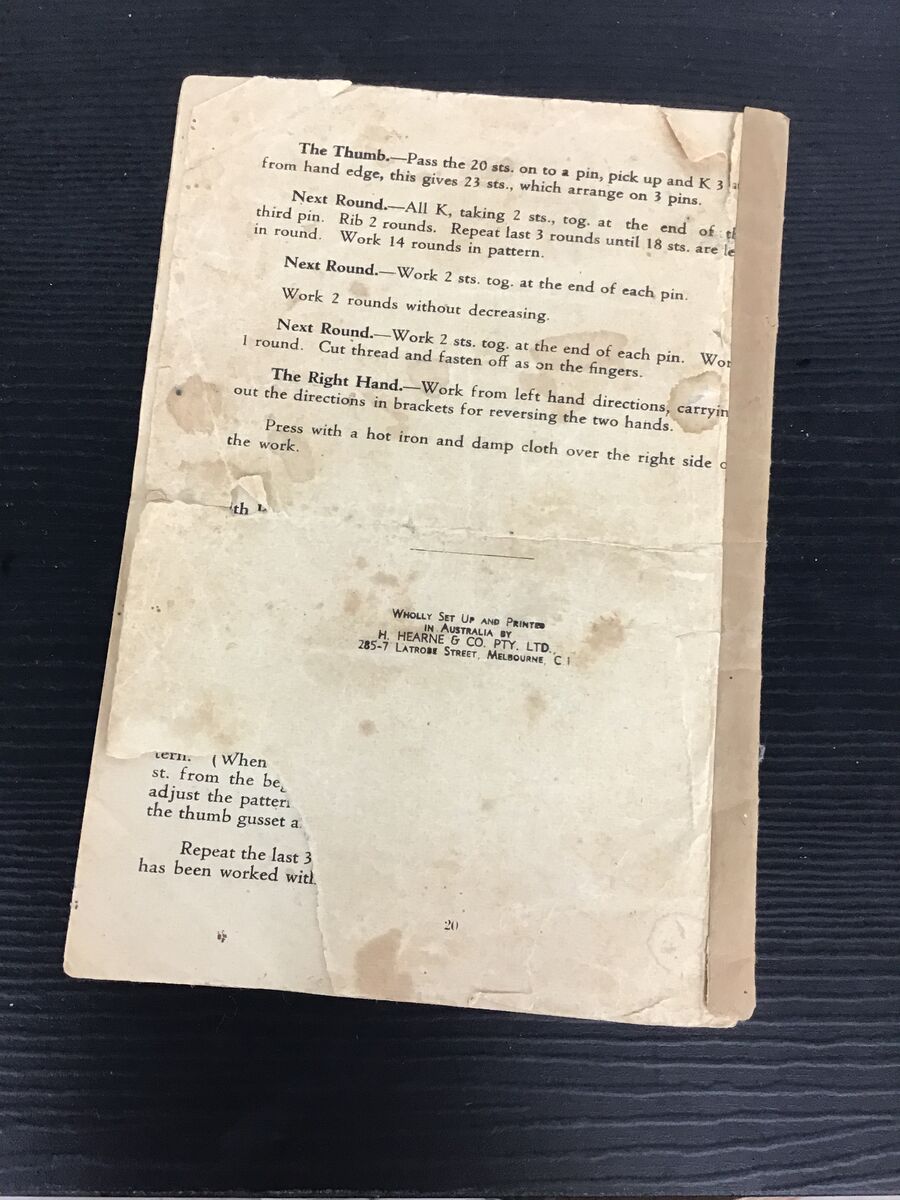 The Thumb.—Pass the 20 sts. on to a pin, pick up and K 3
from hand edge, this gives 23 sts., which arrange on 3 pins.
Next Round.—All K, taking 2 sts., tog. at the end of th
third pin. Rib 2 rounds. Repeat last 3 rounds until 18 sts. are le
in round. Work 14 rounds in pattern.
Next Round.—Work 2 sts. tog. at the end of each pin.
Work 2 rounds without decreasing.
Next Round.—Work 2 sts. tog. at the end of each pin. Wor
1 round. Cut thread and fasten off as on the fingers.
The Right Hand.—Work from left hand directions, carryin
out the directions in brackets for reversing the two hands.
Press with a hot iron and damp cloth over the right side o
the work.
th
Wholly Set Up and Printed
in Australia by
H. HEARNE & CO. PTY. LTD.,
285-7 Latrobe Street, Melbourne, C 1
tern. (When
st. from the beg
adjust the patter
the thumb gusset a
Repeat the last 3
has been worked with
20